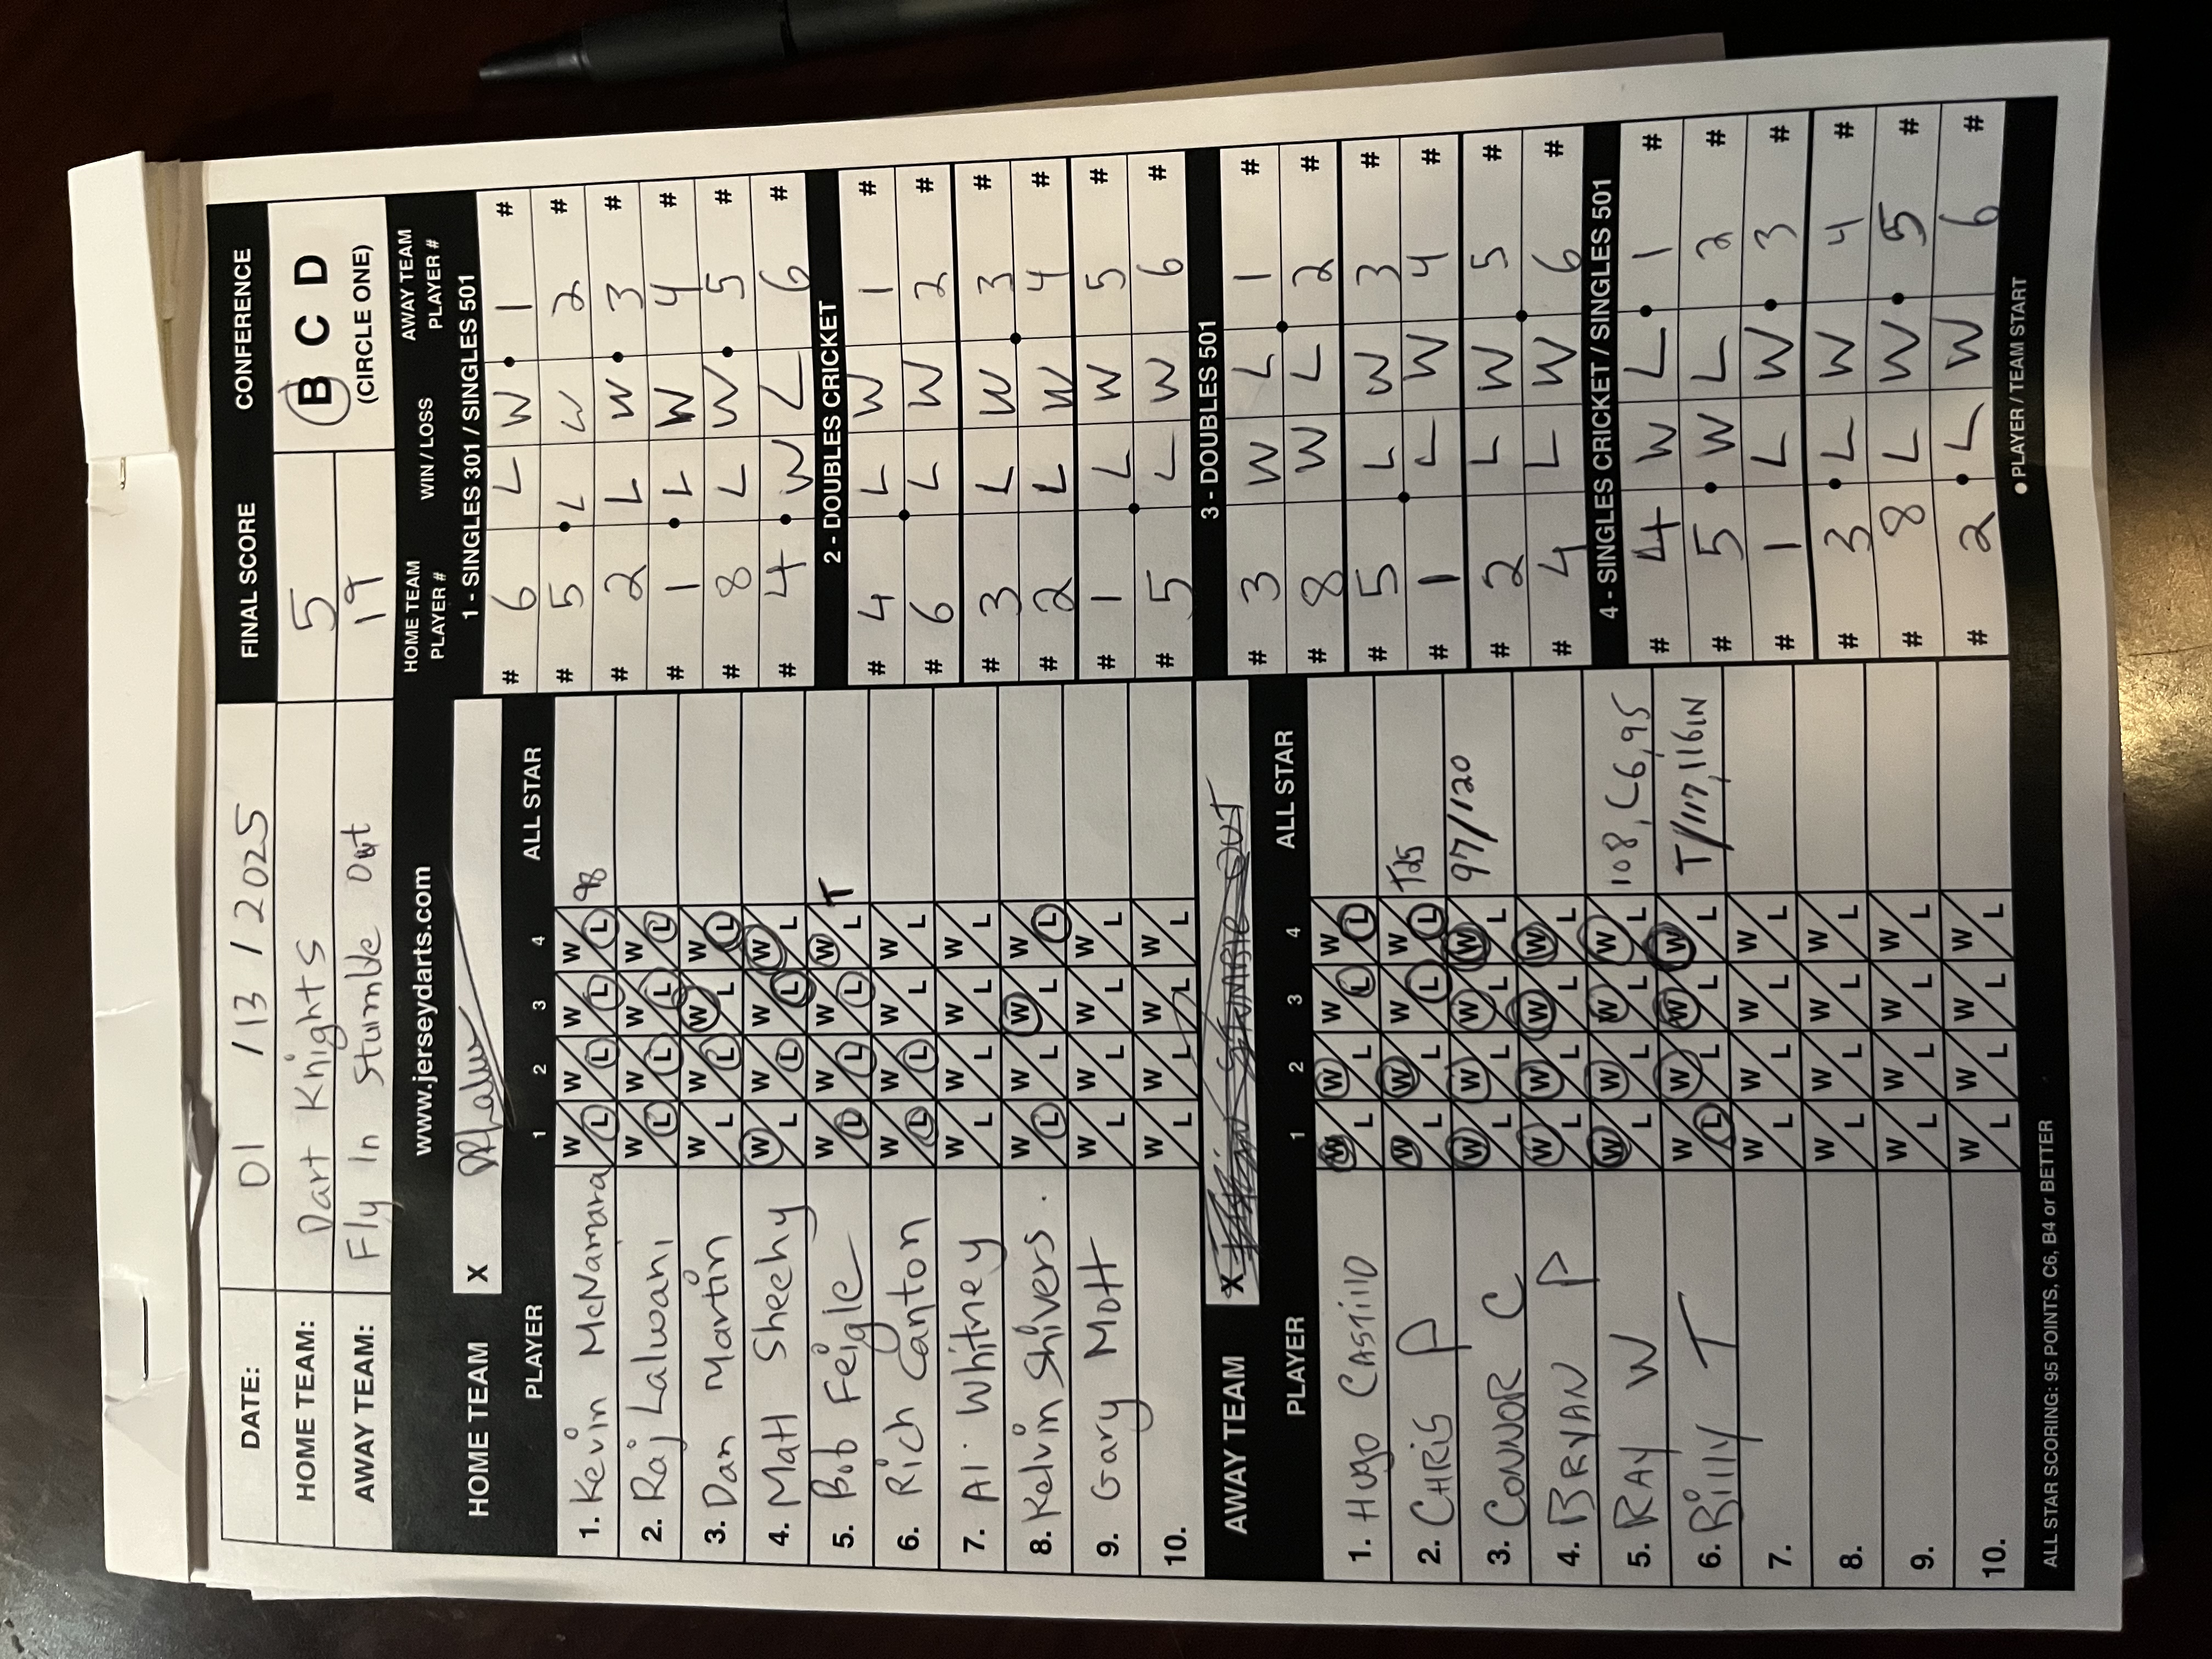 DATE: 01 / 13 / 2025 FINAL SCORE CONFERENCE
HOME TEAM: Dart Knights 5 B C D
AWAY TEAM: Fly In Stumble Out 19 (CIRCLE ONE)
www.jerseydarts.com
HOME TEAM X
PLAYER 1 2 3 4 ALL STAR
1. Kevin McNamara W L W L W L W L 98
2. Raj Lalwani W L W L W L W L
3. Dan Martin W L W L W L W L
4. Matt Sheehy W L W L W L W L
5. Bob Feigle W L W L W L W L T
6. Rich Canton W L W L W L W L
7. Al Whitney W L W L W L W L
8. Kelvin Shivers. W L W L W L W L
9. Gary Mott W L W L W L W L
10. W L W L W L W L
AWAY TEAM X
PLAYER 1 2 3 4 ALL STAR
1. HUGO CASTILLO W L W L W L W L
2. CHRIS P W L W L W L W L T25
3. CONNOR C W L W L W L W L 97/120
4. BRYAN P W L W L W L W L
5. RAY W W L W L W L W L 108, C6, 95
6. BILLY T W L W L W L W L T/117, 116IN
7. W L W L W L W L
8. W L W L W L W L
9. W L W L W L W L
10. W L W L W L W L
ALL STAR SCORING: 95 POINTS, C6, B4 or BETTER
HOME TEAM PLAYER # WIN / LOSS AWAY TEAM PLAYER #
1 - SINGLES 301 / SINGLES 501
# 6 L W 1 #
# 5 L W 2 #
# 2 L W 3 #
# 1 L W 4 #
# 8 L W 5 #
# 4 W L 6 #
2 - DOUBLES CRICKET
# 4 L W 1 #
# 6 L W 2 #
# 3 L W 3 #
# 2 L W 4 #
# 1 L W 5 #
# 5 L W 6 #
3 - DOUBLES 501
# 3 W L 1 #
# 8 W L 2 #
# 5 L W 3 #
# 1 L W 4 #
# 2 L W 5 #
# 4 L W 6 #
4 - SINGLES CRICKET / SINGLES 501
# 4 W L 1 #
# 5 W L 2 #
# 1 L W 3 #
# 3 L W 4 #
# 8 L W 5 #
# 2 L W 6 #
● PLAYER / TEAM START